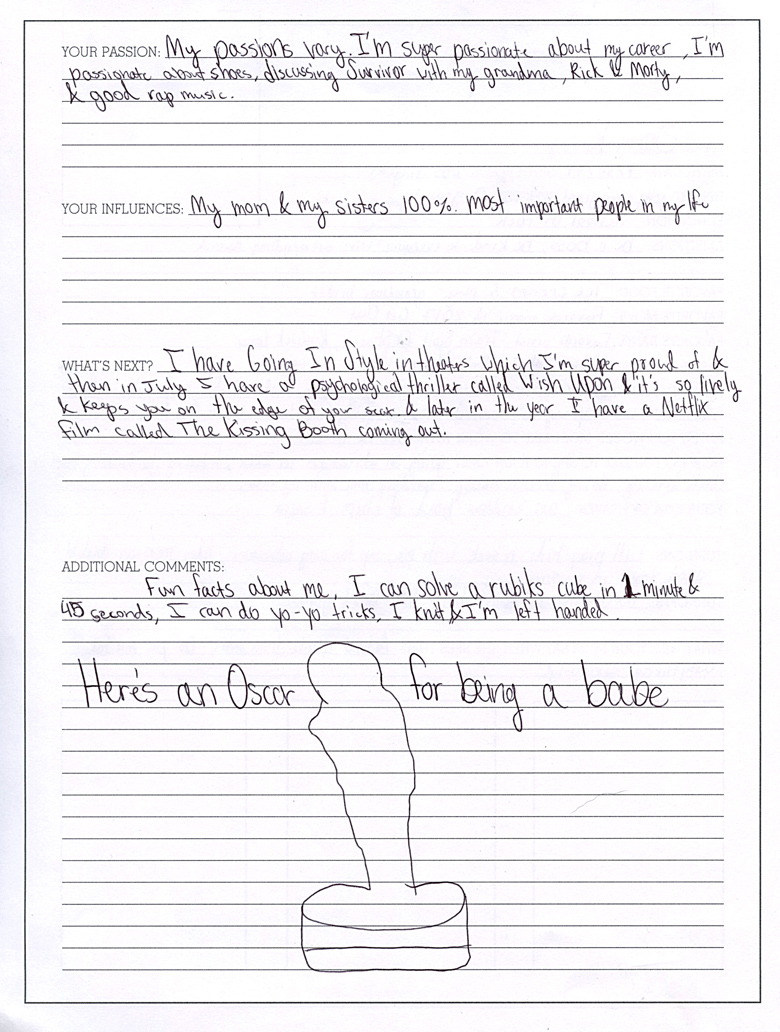 YOUR PASSION: My passions vary. I'm super passionate about my career, I'm
passionate about shoes, discussing Survivor with my grandma, Rick & Morty,
& good rap music.
YOUR INFLUENCES: My mom & my sisters 100%. Most important people in my life
WHAT'S NEXT? I have Going In Style in theaters which I'm super proud of &
then in July I have a psychological thriller called Wish Upon & it's so lively
& keeps you on the edge of your seat. & later in the year I have a Netflix
film called The Kissing Booth coming out.
ADDITIONAL COMMENTS:
Fun facts about me, I can solve a rubiks cube in 1 minute &
45 seconds, I can do yo-yo tricks, I knit & I'm left handed.
Here's an Oscar for being a babe